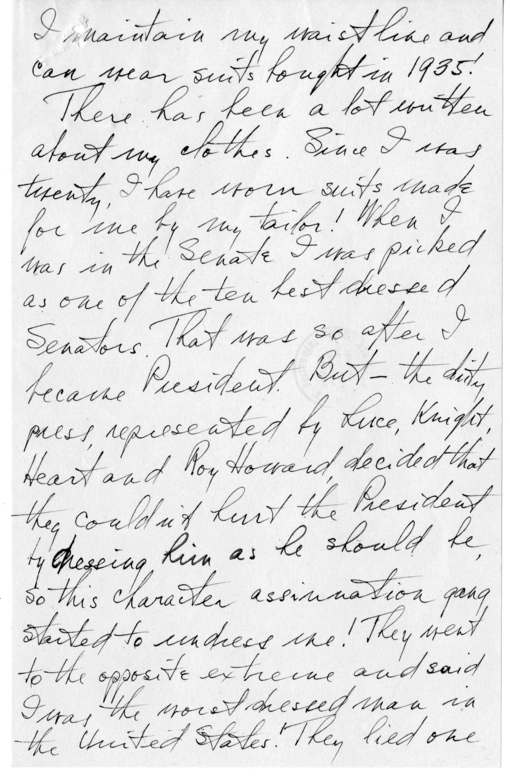 I maintain my waist line and
can wear suits bought in 1935!
There has been a lot written
about my clothes. Since I was
twenty, I have worn suits made
for me by my tailor! When I
was in the Senate I was picked
as one of the ten best dressed
Senators. That was so after I
became President. But – the dirty
press, represented by Luce, Knight,
Heart and Roy Howard, decided that
they couldn't hurt the President
by dressing him as he should be,
so this character assinnation gang
started to undress me! They went
to the opposite extreme and said
I was the worst dressed man in
the United States! They lied one